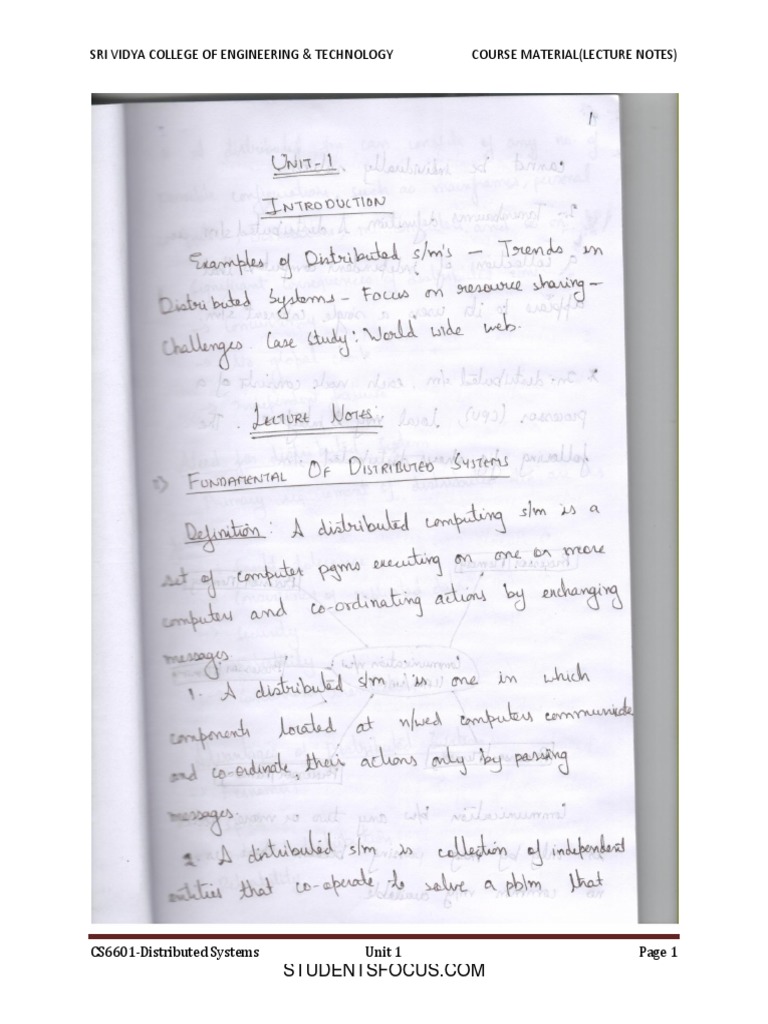 SRI VIDYA COLLEGE OF ENGINEERING & TECHNOLOGY COURSE MATERIAL(LECTURE NOTES)
1
UNIT-1
INTRODUCTION
Examples of Distributed s/m's – Trends in
Distributed Systems – Focus on resource sharing –
Challenges. Case Study: World wide web.
LECTURE NOTES:
1) FUNDAMENTAL OF DISTRIBUTED SYSTEMS
Definition: A distributed computing s/m is a
set of computer pgms executing on one or more
computers and co-ordinating actions by exchanging
messages.
1. A distributed s/m is one in which
components located at n/wed computers communicate
and co-ordinate, their actions only by passing
messages.
2. A distributed s/m is collection of independent
entities that co-operate to solve a pblm that
CS6601-Distributed Systems Unit 1 Page 1
STUDENTSFOCUS.COM